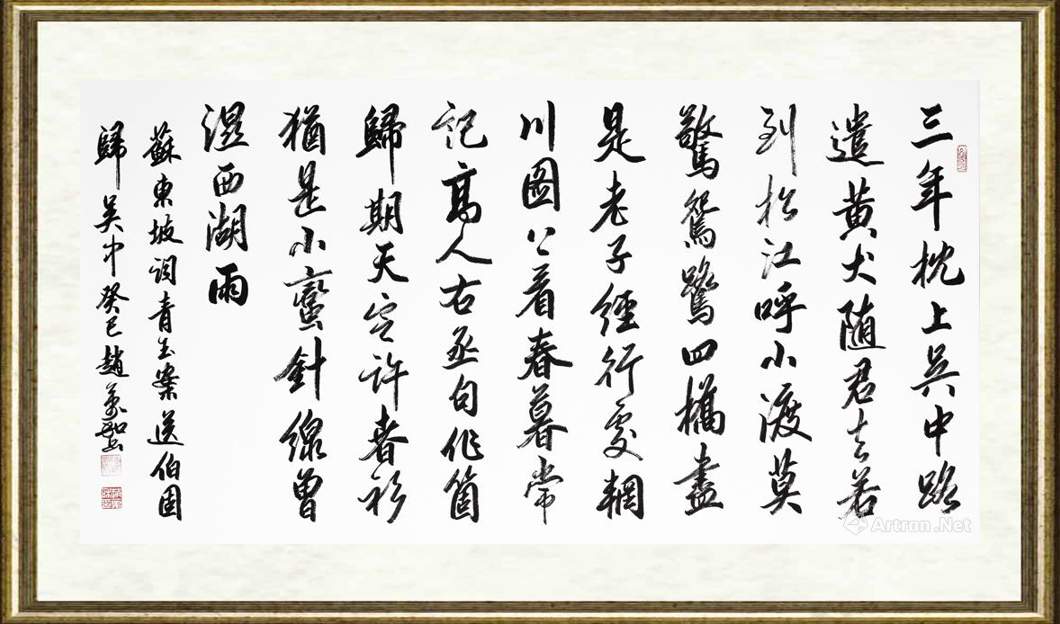 三年枕上吳中路
遣黄犬随君去若
到松江呼小渡莫
驚鴛鷺四橋盡
是老子經行處輞
川圖上看春暮常
記高人右丞句作箇
歸期天定許春衫
猶是小蠻針線曾
湿西湖雨
蘇東坡詞青玉案送伯固
歸吴中癸巳趙
Artron.Net